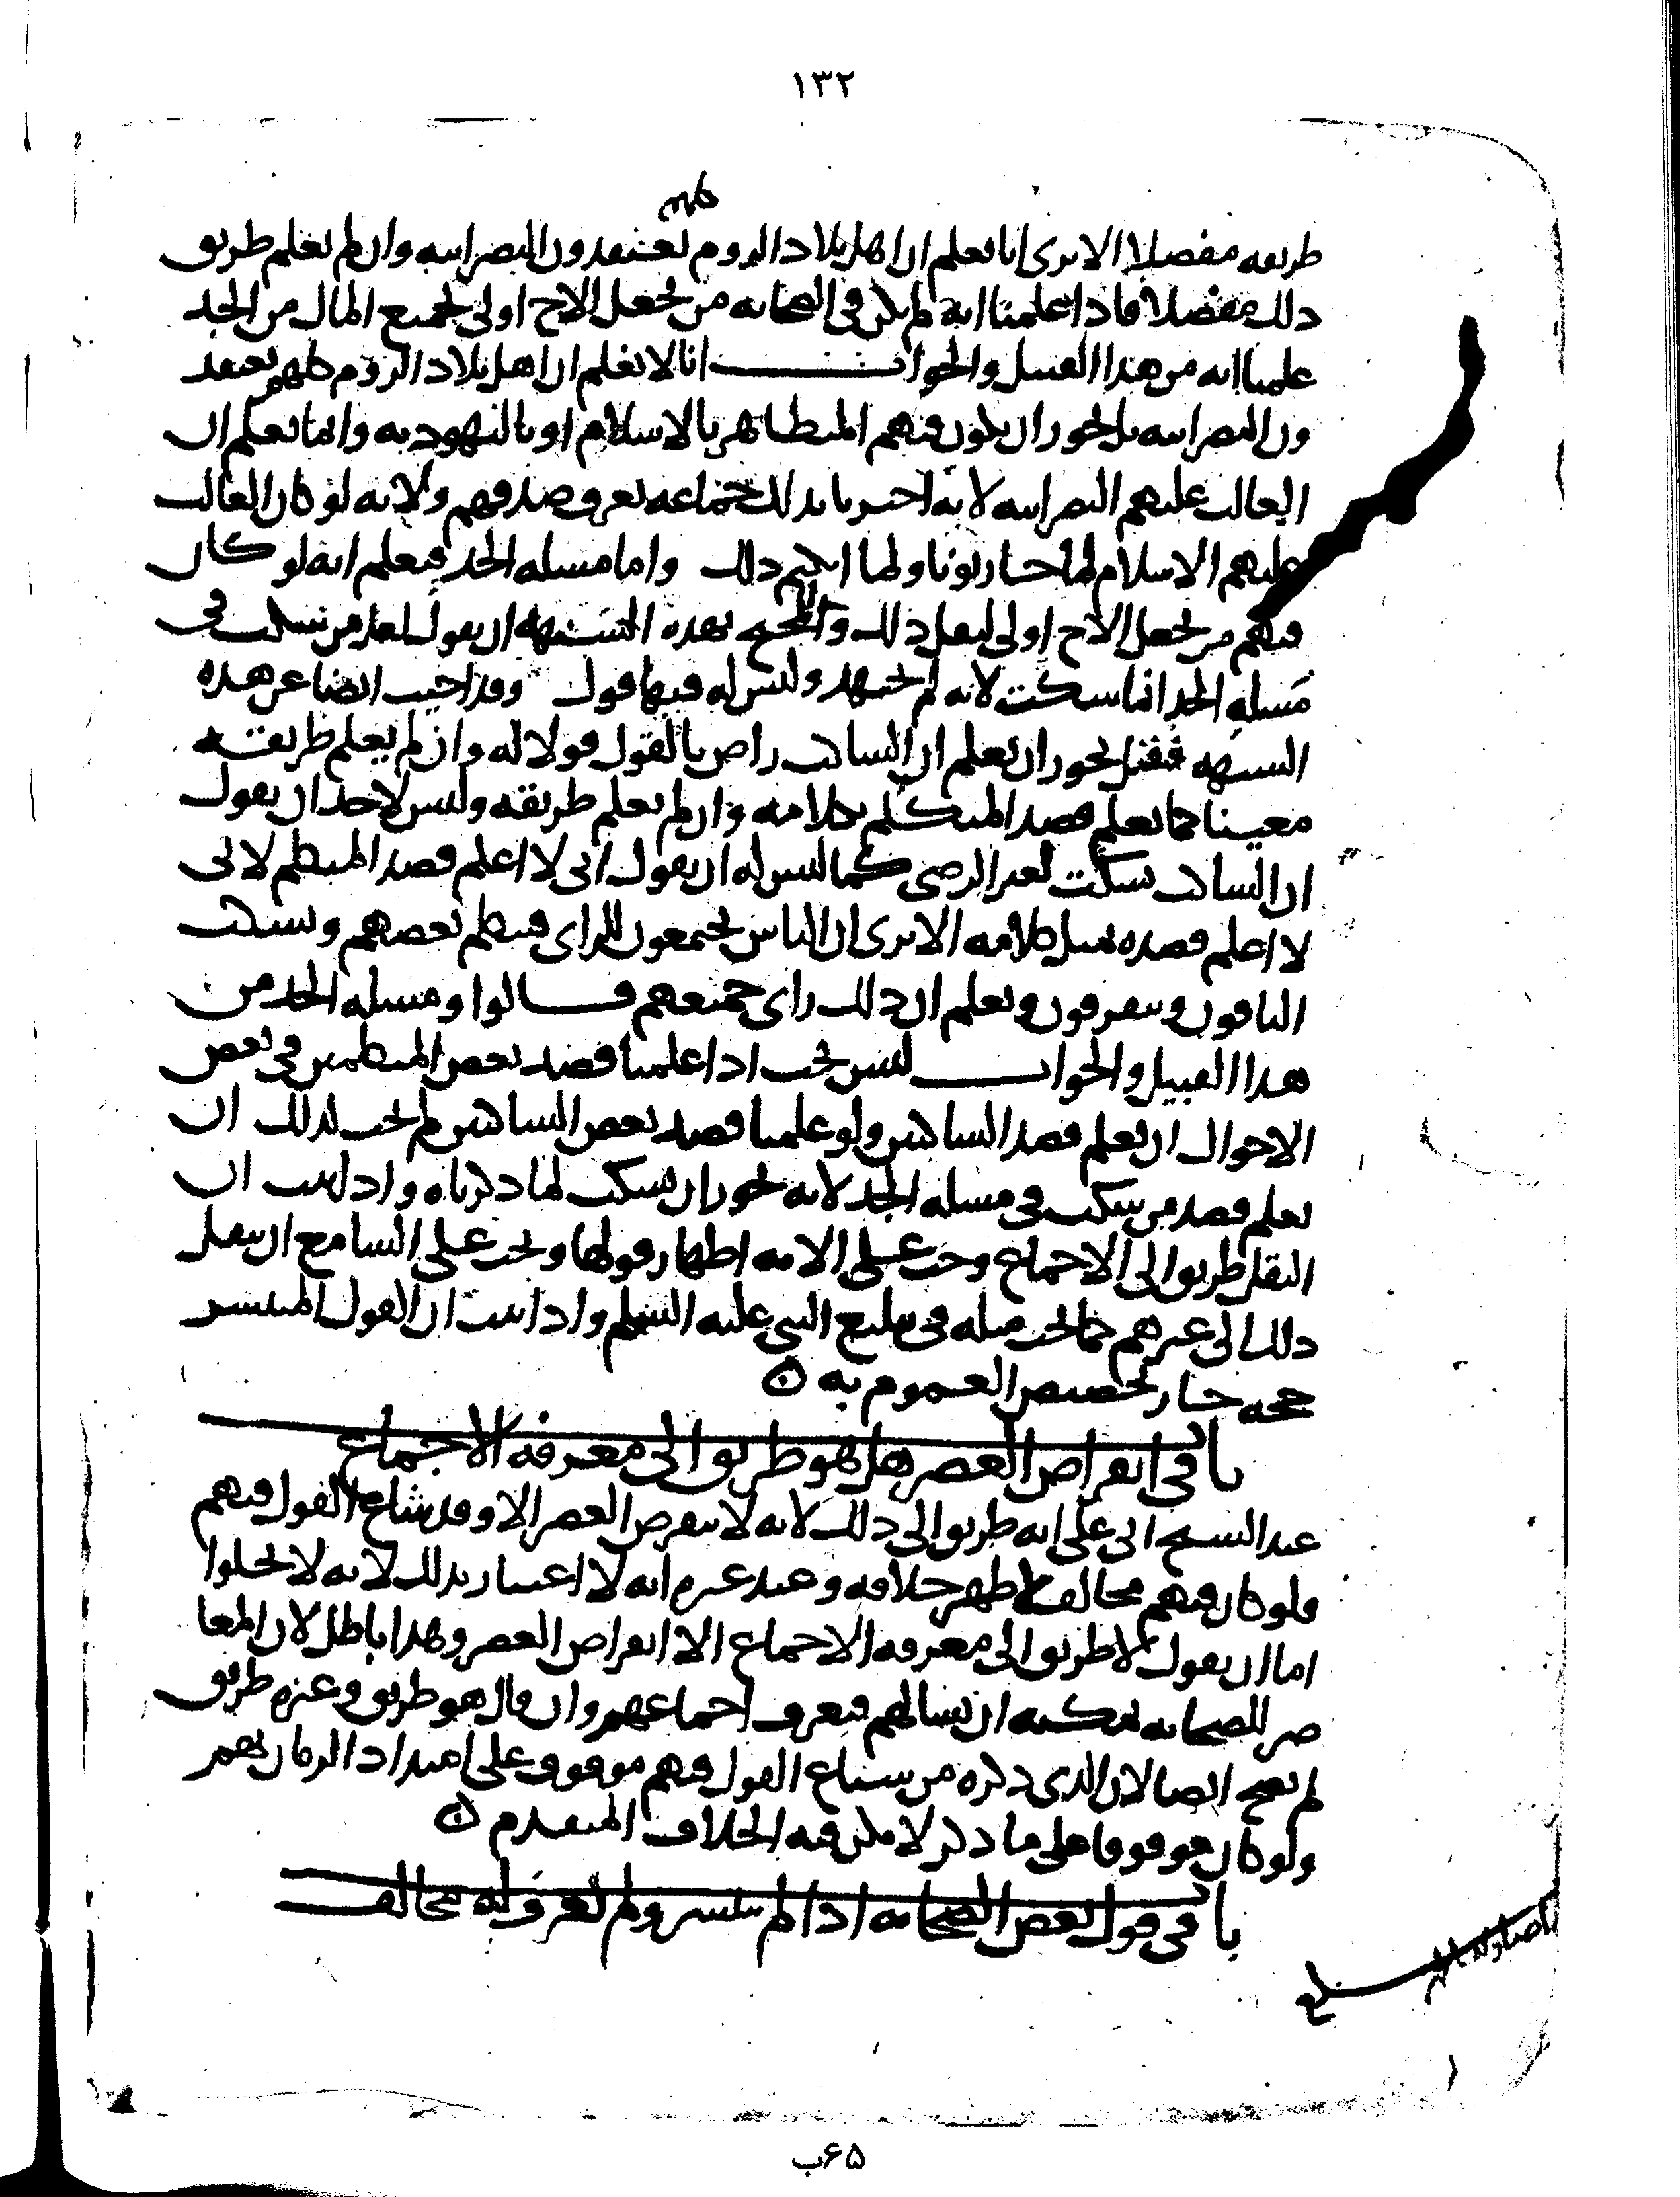 ١٣٢
كلهم
طريقه مفصلا الا ترى انا نعلم ان اهل بلاد الروم يعتقدون النصرانيه وان لم نعلم طريق
ذلك مفصلا فاذا علمنا انه لم يكن في الصحابه من يجعل الاخ اولى بجميع المال من الجد
علمنا انه من هذا القبيل والجواب انا لا نعلم ان اهل بلاد الروم كلهم يعتقد
ون النصرانيه بل يجوز ان يكون فيهم المتظاهر بالاسلام او باليهوديه وانما نعلم ان
الغالب عليهم النصرانيه لانه اخبرنا بذلك جماعه نعرف صدقهم ولانه لو كان الغالب
عليهم الاسلام لما حاربونا ولما ذلك واما مسله الجد فنعلم انه لو كان
فيهم من يجعل الاخ اولى لنقل ذلك والمحتج بهذه الشبهه ان يقول لعل من سكت في
مسله الجد انما سكت لانه لم يجتهد وليس له فيها قول وقد اجيب ايضا عن هذه
الشبهه فقيل يجوز ان نعلم ان الساكت راض بالقول قولا له وان لم يعلم طريقته
معينا كما نعلم قصد المتكلم بكلامه وان لم نعلم طريقه وليس لاحد ان يقول
ان الساكت سكت لغير الرضى كما ليس له ان يقول اني لا اعلم قصد المتكلم لاني
لا اعلم قصده قبل كلامه الا ترى ان الناس يجتمعون للراى فيتكلم بعضهم ويسكت
الباقون ويتفرقون ونعلم ان ذلك راى جميعهم قالوا ومسله الجد من
هذا القبيل والجواب ليس يجب اذا علمنا قصد بعض المتكلمين في بعض
الاحوال ان نعلم قصد الساكتين ولو علمنا قصد بعض الساكتين لم يجب لذلك ان
نعلم قصد من سكت في مسله الجد لانه يجوز ان يسكت لما ذكرناه واذا ثبت ان
النقل طريق الى الاجماع وجب على الامه اظهار قولها ويجب على السامع ان ينقل
ذلك الى غيرهم كما يجب مثله في تبليغ النبي عليه السلم واذا ثبت ان القول المنتشر
حجه جاز تخصيص العموم به
باب في انقراض العصر هل هو طريق الى معرفه الاجماع
عند الشيخ ابي على انه طريق الى ذلك لانه لا ينقرض العصر الا وقد شاع القول فيهم
فلو كان فيهم مخالف لظهر خلافه وعند غيره انه لا اعتبار بذلك لانه لا يخلوا
اما ان يقول لا طريق الى معرفه الاجماع الا انقراض العصر وهذا باطل لان المعا
صر للصحابه يمكنه ان يسالهم فيعرف اجماعهم وان قال هو طريق وغيره طريق
لم يصح ايضا لان الذي ذكره من شياع القول فيهم موقوف على امتداد الزمان بهم
ولو كان موقوفا على ما ذكر لا مكن فيه الخلاف المتقدم
باب في قول بعض الصحابه اذا لم ينتشر ولم يعرف له مخالف
بلغ
٦٥ب